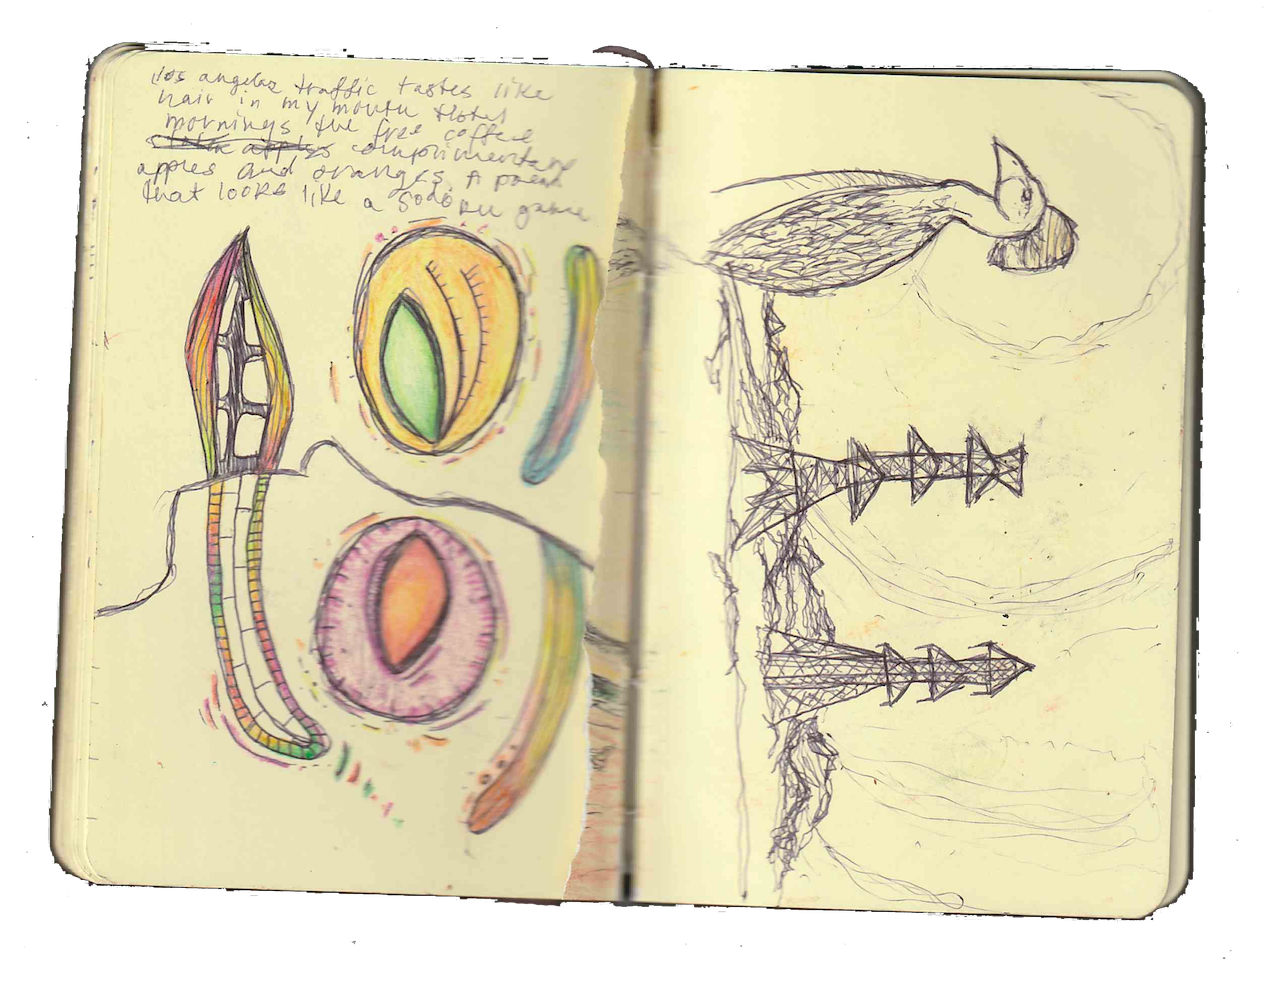 los angeles traffic tastes like
hair in my mouth Hotel
mornings the free coffee
complimentary
apples and oranges. A poem
that looks like a Sodoku game